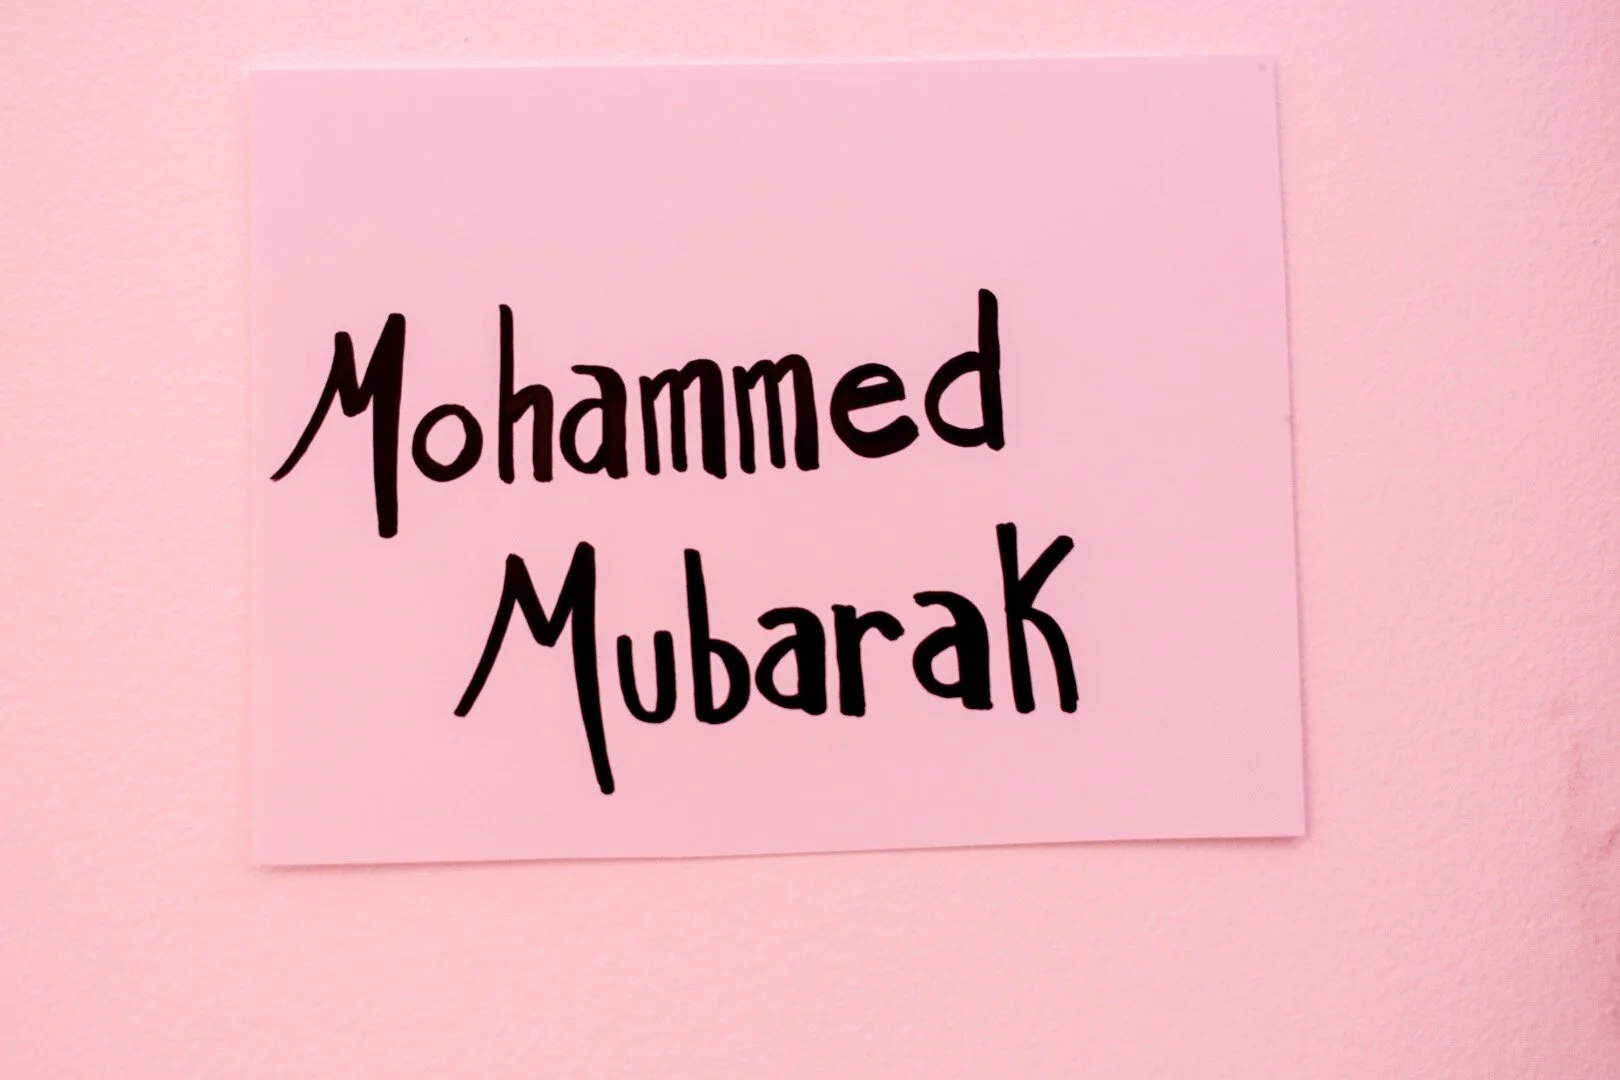 Mohammed
Mubarak